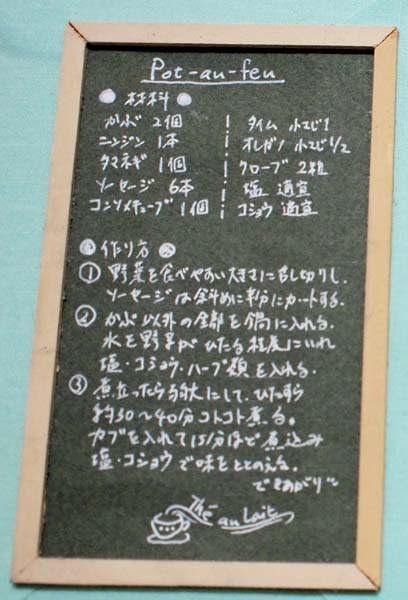 Pot-au-feu
材料
かぶ 2個
ニンジン 1本
タマネギ 1個
ソーセージ 6本
コンソメキューブ 1個
タイム 小さじ1
オレガノ 小さじ1/2
クローブ 2粒
塩 適宜
コショウ 適宜
作り方
① 野菜を食べやすい大きさに切りし、
ソーセージは斜めに半分にカットする。
② かぶ以外の全部を鍋に入れる。
水を野菜がひたる程度にいれ
塩・コショウ・ハーブ類を入れる。
③ 煮立ったら弱火にして、ひたすら
約30〜40分コトコト煮る。
カブを入れて15分ほど煮込み
塩・コショウで味をととのえる。
できあがり
Thé
au Lait